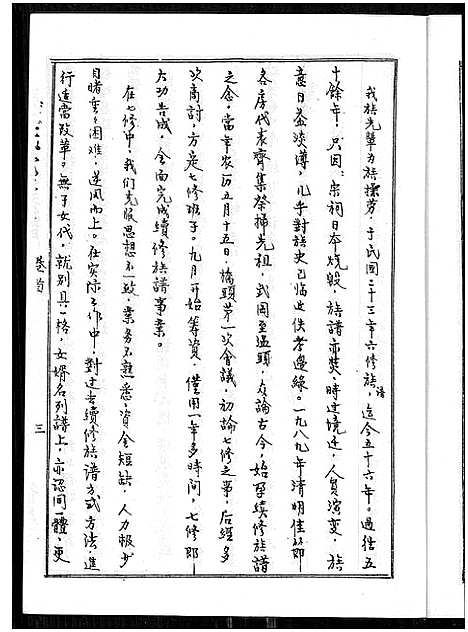 我族先輩为族操劳，于民国二十三年六修族譜，迄今五十六年。過往五
十餘年，只因：宗祠日本烧毁，族譜亦焚，時过境迁，人員演变，族
意日益淡薄，几乎對族史已临近佚考邊緣。一九八九年清明佳節即
各房代表齊集祭掃先祖，武岡至温頭，众論古今，始孕续修族譜
之念，當年农历五月十五日，橋頭第一次會議，初論七修之事，后經多
次商討，方定七修班子。九月开始筹資，僅用一年多時间，七修即
大功告成，全面完成續修族譜事業。
在七修中，我们克服思想不一致，業务不熟悉，資金短缺，人力极少
目睹重重困难，逆风而上。在实际工作中，對过去續修族譜方式方法，進
行适當改革。無子女代，就别具一格，女婿名列譜上，亦認同一體，更
卷首
三